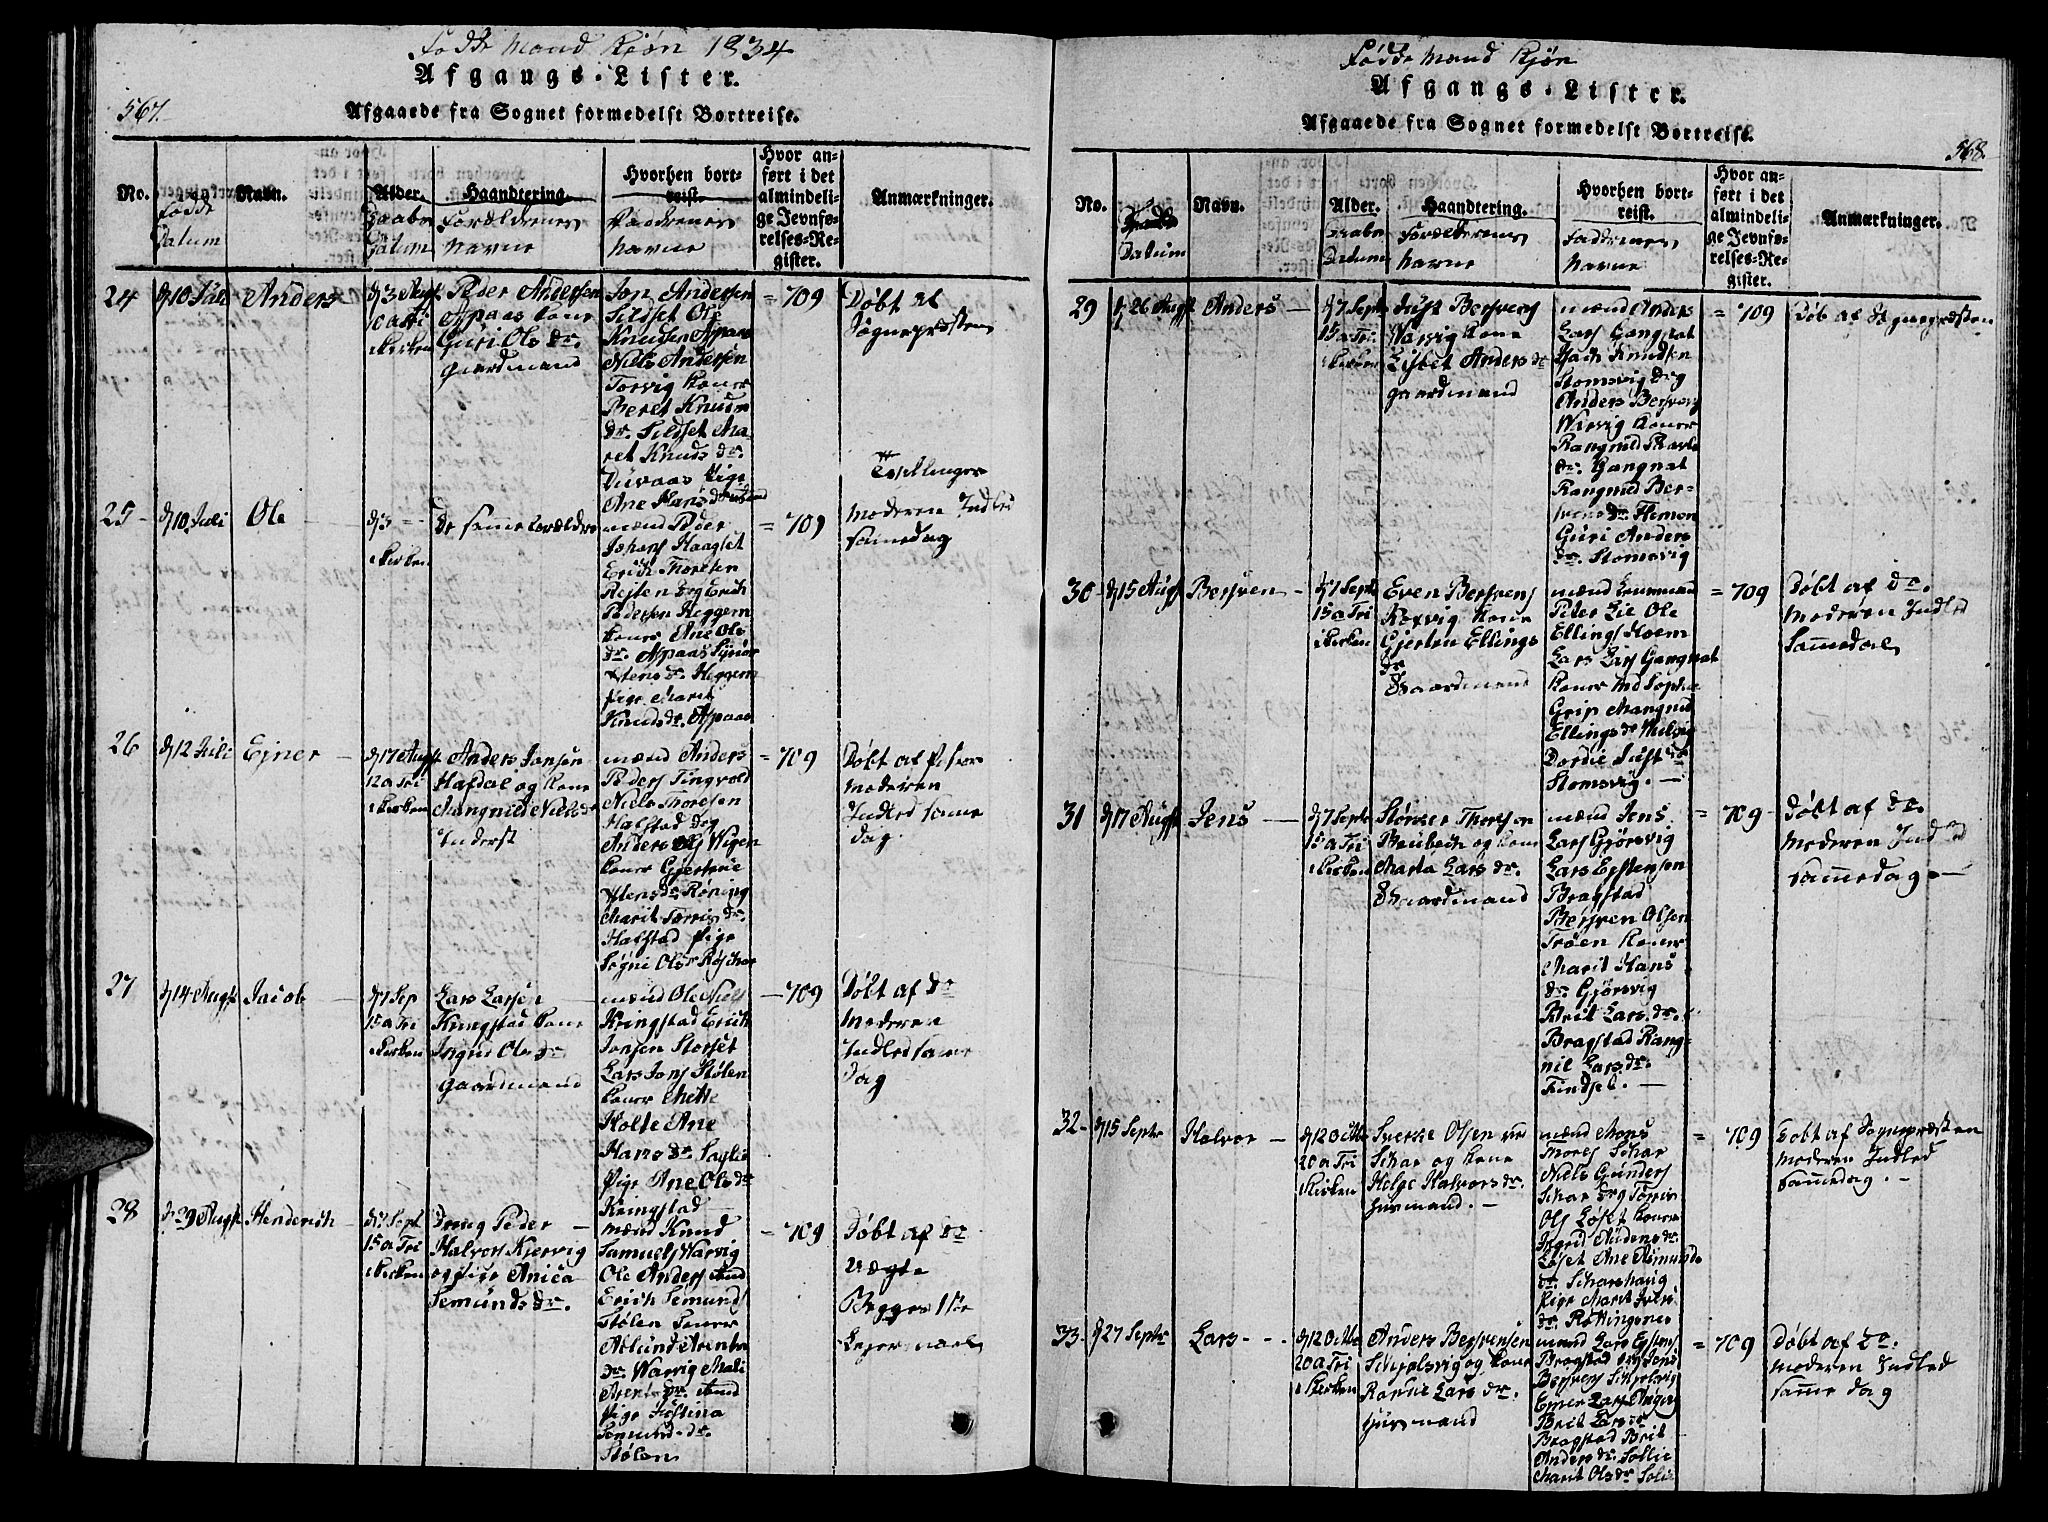 Fødde Mand Kiøn 1834
Afgangs-Lister.
567.
Afgaaede fra Sognet formedelst Bortreise.
No.
Fødde
Datum
Navn.
Alder.
Daabs
Datum
Haandtering.
Forældrenes
Navne
Hvorhen bort-
reist.
Faddrenes
Navne
Hvor an-
ført i det
almindeli-
ge Jevnfø-
relses-Re-
gister.
Anmærkninger.
24
d 10 Juli
Anders
d 3 Augst
10 a Tri
i Kirken
Peder Andersen
Aspaas kone
Guri Ols dr.
Gaardmand
Jon Andersen
Sildset Ole
Knudsen Aspaas
Niels Andersen
Torvig koner
Beret Knuds
dr. Sildset Ma-
ret Knuds dr.
Duraas Pige
Ane Hans dr
= 709
Døbt af
Sognepræsten
Tvillinger
25
d 10 Juli
Ole
d 3
i Kirken
De samme Forældre
mænd Peder
Johans Haagset
Erich Thoresen
Reiten Drg Erich
Pedersen Heggem
koner Ane Ols
dr. Aspaas
Stens dr. Heggem
Pige Marit
Knuds dr. Aspaas
= 709
Moderen Indled
samme dag
26
d 12 Juli
Ejner
d 17 Augst
12 a Tri
i Kirken
Anders Jonsen
Hafdal og kone
Mangnild Niels dr
Inderst
mænd Anders
Peders Tingvold
Niels Thoresen
Halstad Drg
Anders Ols Wigen
koner Gjertrue
Stens dr. Røning
Marit Torris dr.
Halstad Pige
Signi Ols dr
= 709
Døbt af
Moderen
Indled samme
dag.
27
d 14 Augst
Jacob
d 7 Sep
15 a Tri
i Kirken
Lars Larsen
Kringstad kone
Ingri Ols dr
Gaardmand
mænd Ole Niels
Kringstad Erich
Jonsen Storset
Lars Jons Stølen
koner Mette
Holte Ane
Hans dr.
Pige Ane Ols dr
Kringstad
= 709
Døbt af do
Moderen
Indled samme
dag
28
d 29 Augst
Henderich
d 7 Sept
15 a Tri
i Kirken
Drng Peder
Halvors Kjørvig
og Pige Anica
Semunds dr.
mænd Knud
Samuels Warvig
Ole Anders
Erich Semunds
Stølen koner
Aslund Arenbr
dr. Warvig Mali
Arents dr.
Pige Justina
Semunds dr.
Stølen
= 709
Døbt af do
Uægte
Begges 1ste
Leiermaal
Fødde Mand Kjøn
Afgangs-Lister.
Afgaaede fra Sognet formedelst Bortreise.
568.
No.
Fødde
Datum
Navn.
Alder.
Daabs
Datum
Haandtering.
Forældrenes
Navne
Hvorhen bort-
reist.
Faddrenes
Navne
Hvor an-
ført i det
almindeli-
ge Jevnfø-
relses-Re-
gister.
Anmærkninger.
29
d 26 Augst
Anders
d 7 Sept
15 a Tri
i Kirken
Just Bersvens
Warvig kone
Lisbet Anders dr
Gaardmand
mænd Anders
Lars Gangnat
Knudsen
Stomsvig Drg
Anders Bersvens
Warvig koner
Rangnild
dr. Gangnat
Rangnild Ber-
svens dr Hemon
Guri Anders
dr. Stomsvig
= 709
Døb af Sognepræsten
30
d 15 Augst
Bersven
d 7 Sept
15 a Tri
i Kirken
Even Bersvens
Roxvig kone
Gjerten Ellings
dr
Gaardmand
mænd
Peter Lie Ole
Ellings Hoem
Lars Lars Gangnat
koner Md Sophie
Grip Mangnild
Ellings dr
Dordie Just dr
Stomsvig.
= 709
Døbt af do.
Moderen Indled
Samme dag
31
d 17 Augst
Jens
d 7 Sept
15 a Tri
i Kirken
Størker Thoresen
og kone
Maria Lars dr.
Gaardmand
mænd Jens
Lars Gjørsvig
Lars Eystensen
Bragstad
Bersven Olsen
Trøen koner
Marit Hans
dr. Gjørsvig
Brit Lars dr.
Bragstad Rang-
nil Lars dr.
Tindset.
= 709
Døbt af do.
Moderen Indled
samme dag
32
d 15 Septr
Halvor
d 12 Octbr
20 a Tri
i Kirken
Sverke Olsen
Schar og kone
Helge Halvors dr.
Huusmand.
mænd Mons
Mores Schar
Niels Gunders
Schar Drg Torris
Ols Løset koner
Ingrid Audens dr.
Løset Ane Asmunds
dr. Scharshaug
Pige Marit Ivers
dr. Rottingsnes
= 709
Døbt af Sognepræsten
Moderen Indled
samme dag.
33
d 27 Septr
Lars
d 12 Octbr
20 a Tri
i Kirken
Anders Bersvensen
Schjølsvig og kone
Lars dr.
Huusmand
mænd Lars Eystens
Bragstad Drg Jens
Bersvens Schjelsvig
Ejner Lars
Brit Lars dr
Bragstad Brit
Anders dr. Sollie
Marit Ols dr Solie
= 709
Døbt af do.
Moderen Indled
samme dag